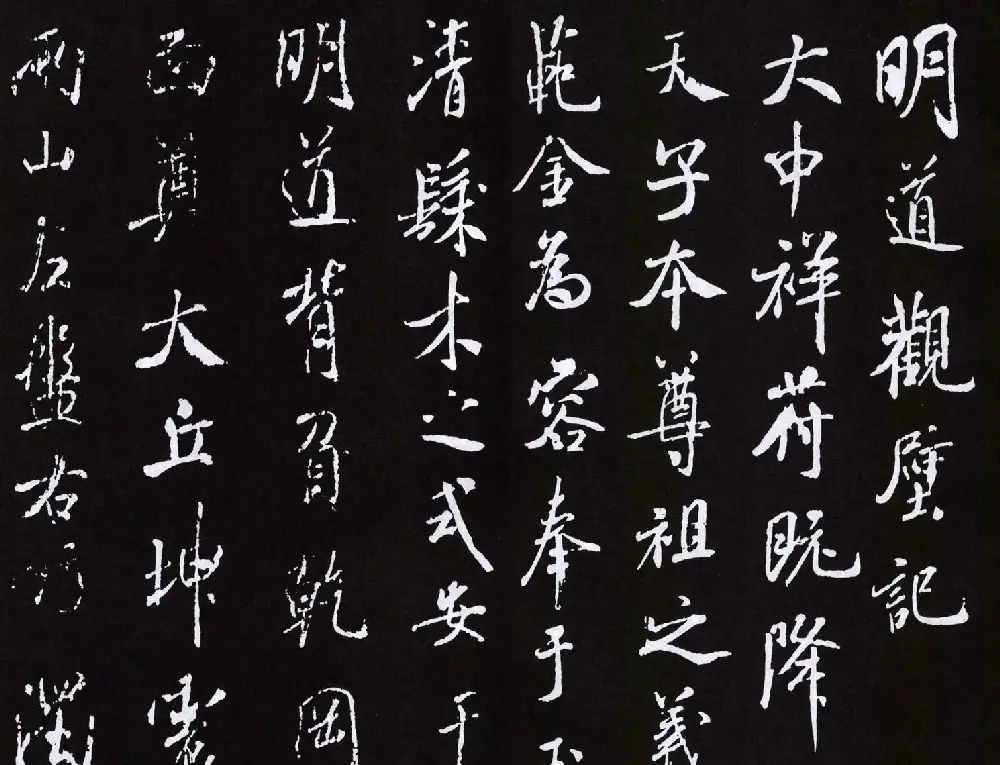 明道觀壁記
大中祥符既降
天子本尊祖之義
範金為容奉于玉
清繇木之式安于
明道背負乾岡
面奠大丘坤
兩山左盤右